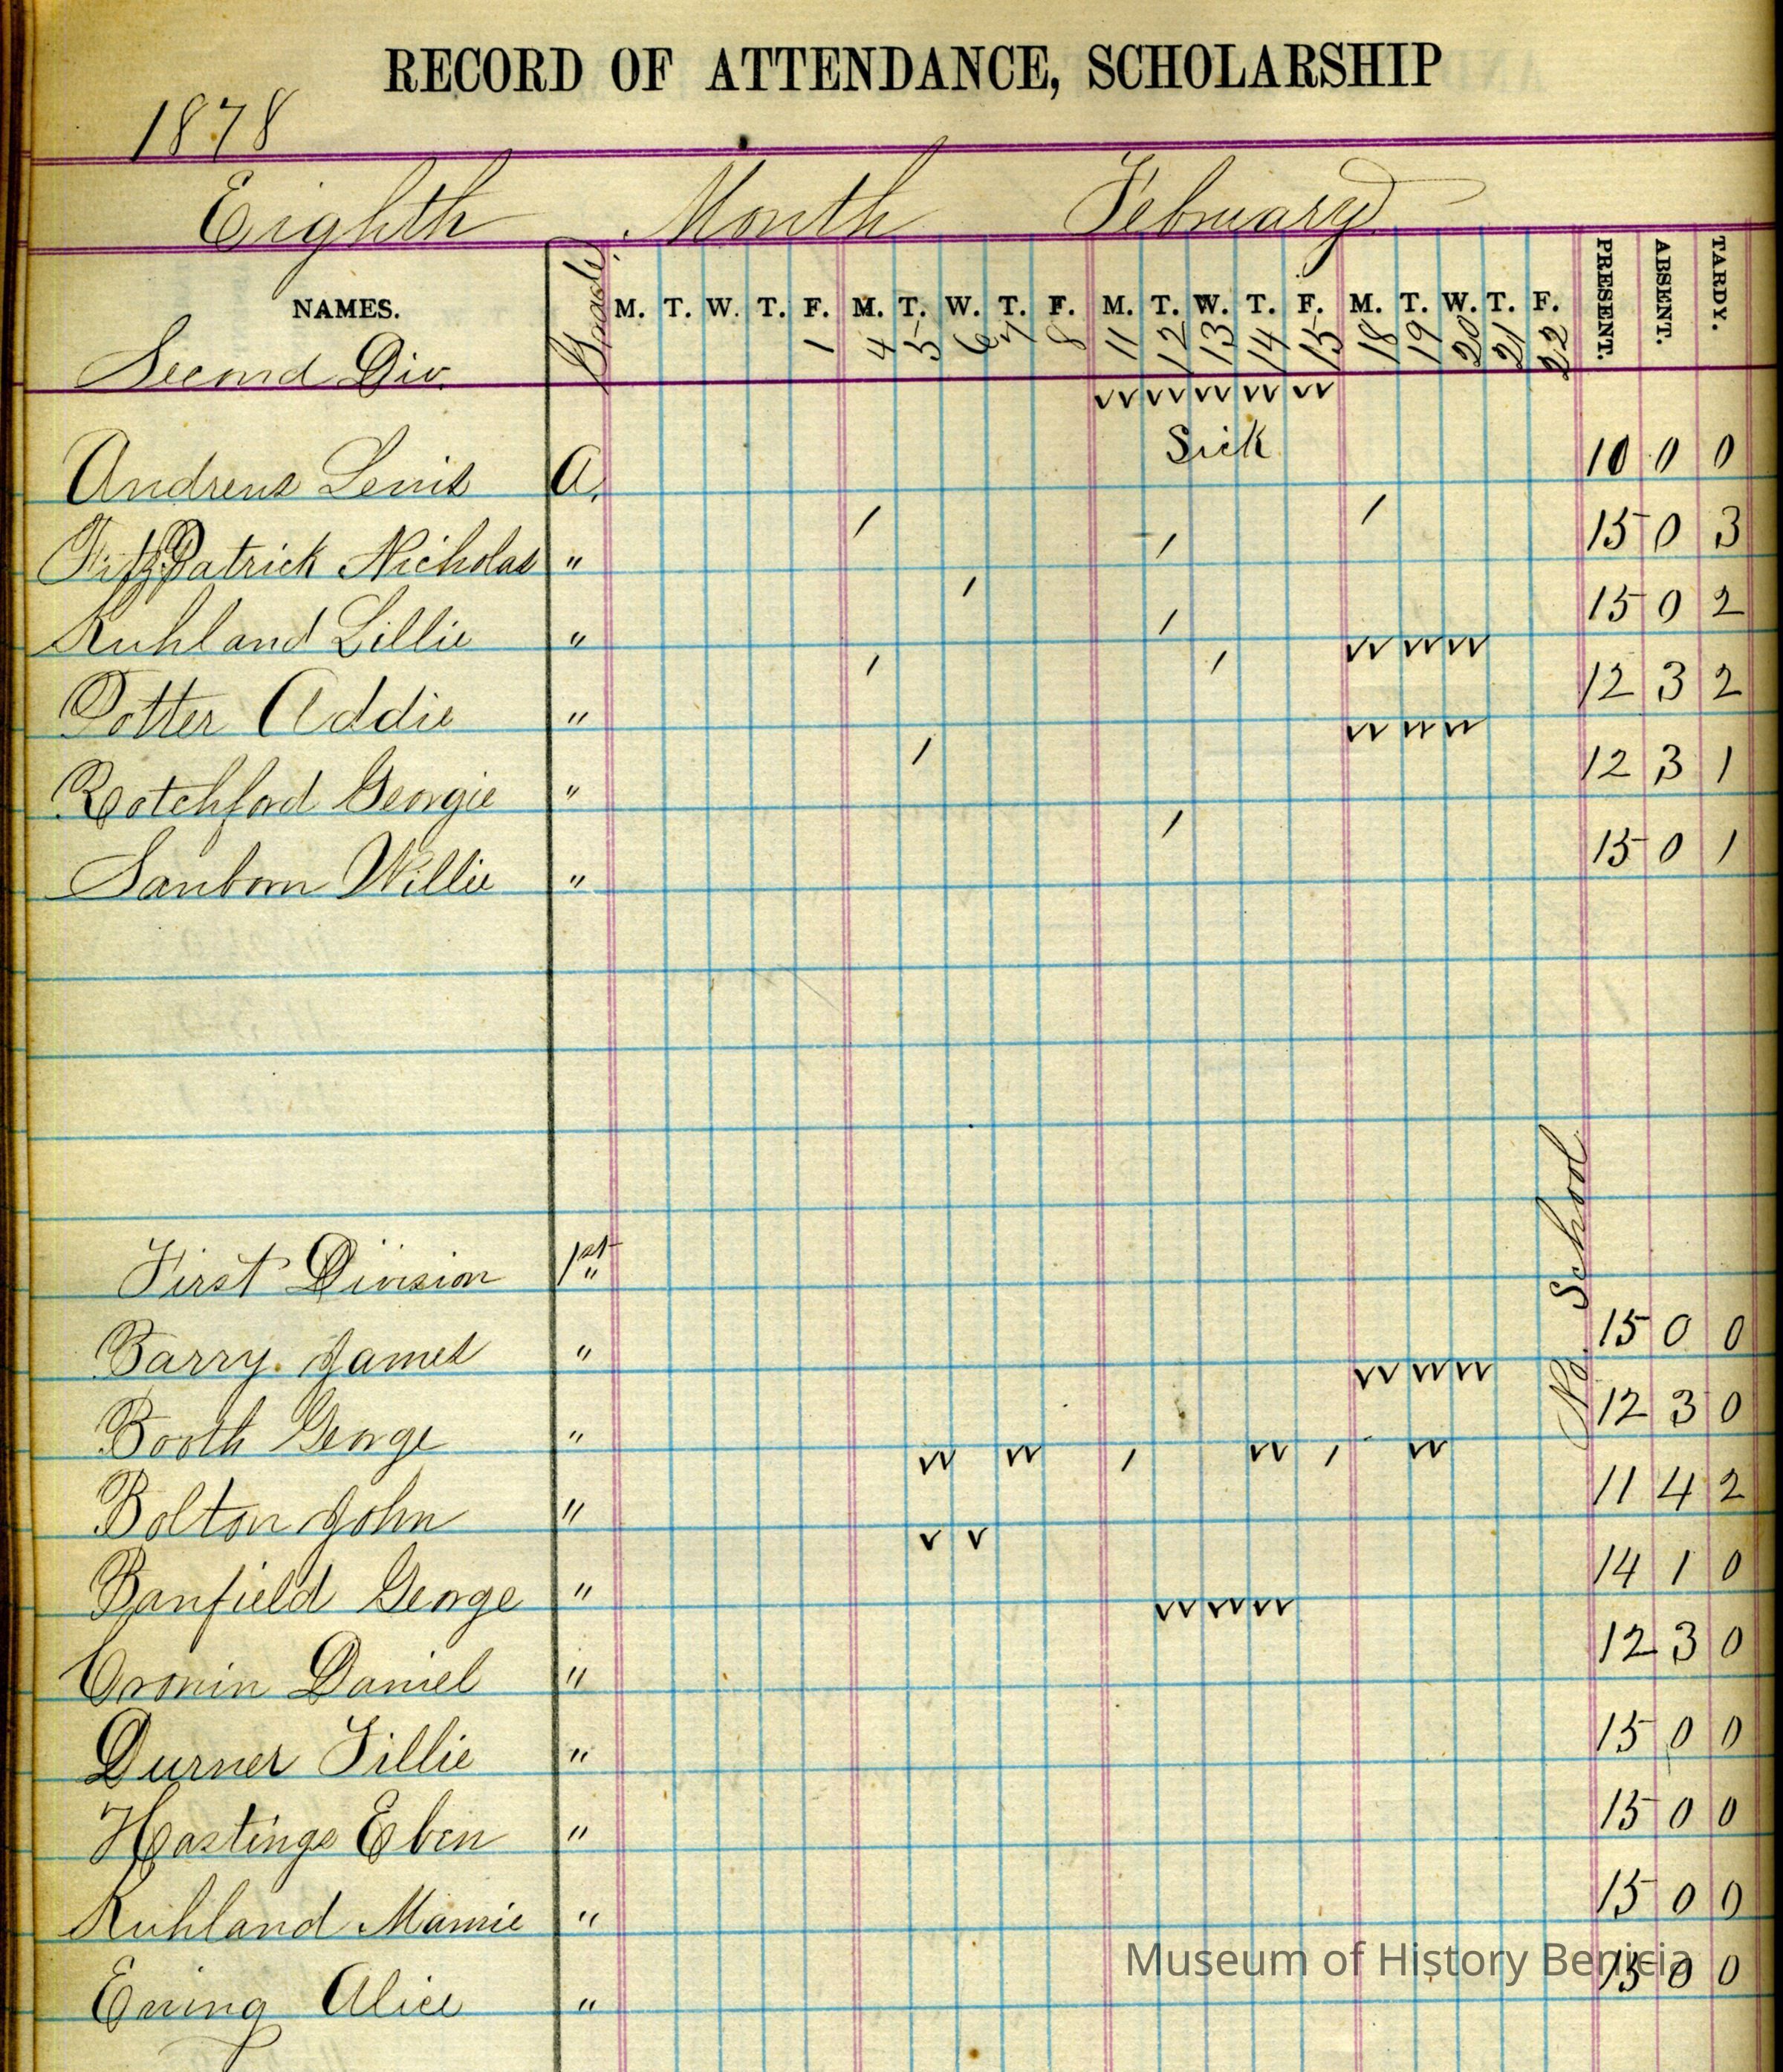 RECORD OF ATTENDANCE, SCHOLARSHIP
1878
Eighth Month February
NAMES. Grade. M. T. W. T. F. M. T. W. T. F. M. T. W. T. F. M. T. W. T. F. PRESENT. ABSENT. TARDY.
Second Div. 1 4 5 6 7 8 11 12 13 14 15 18 19 20 21 22
Andrews Lewis A. Sick 10 0 0
FitzPatrick Nicholas " 15 0 3
Kuhland Lillie " 15 0 2
Potter Addie " 12 3 2
Rotchford Georgie " 12 3 1
Sanborn Willie " 15 0 1
No School
First Division 1st "
Barry. James " 15 0 0
Booth George " 12 3 0
Bolton John " 11 4 2
Banfield George " 14 1 0
Cronin Daniel " 12 3 0
Durner Tillie " 15 0 0
Hastings Eben " 15 0 0
Kuhland Mamie " 15 0 0
Ewing Alice " 15 0 0
Museum of History Benicia